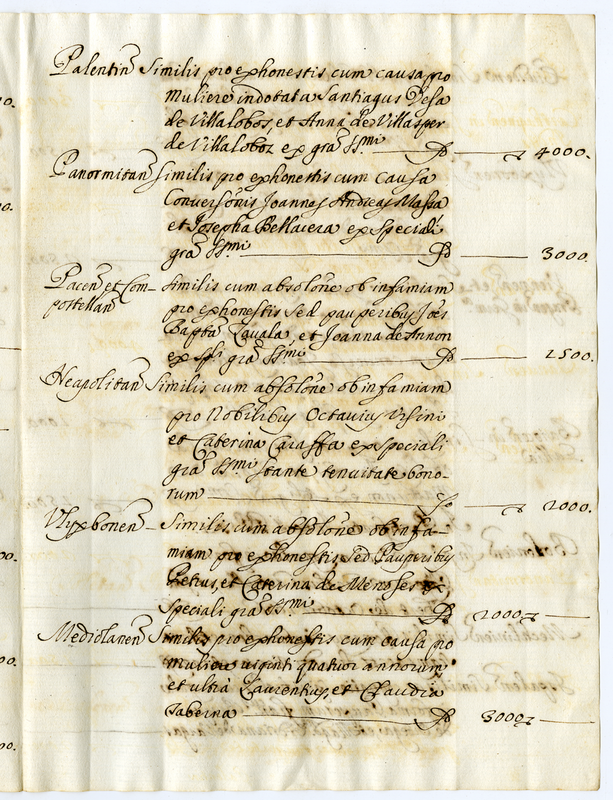 Palentin̄ Similis pro exhonestis cum causa pro
muliere indotata Santiagus Vela
de Villalobos, et Anna de Villasper
de Villaloboz ex gra͠ SSmi 4000.
Panormitan̄ Similis pro exhonestis cum causa
Conversonis Joannes Andreas Massa
et Josepha Bellacera ex speciali
gra͠ SSmi 3000.
Pacen̄ et Com- Similis cum absolōne ob infamiam
postellan̄ pro exhonestis sed pauperibus Joēs
Bapta Zavala, et Joanna de Annon
ex spli gra͠ SSmi 1500.
Neapolitan̄ Similis cum absolōne ob infamiam
pro Nobilibus Octavius Ursini
et Caterina Caraffa ex speciali
gra͠ SSmi stante tenuitate bono-
rum 2000.
Vlyxbonen̄ Similis cum absolōne ob infa-
miam pro exhonestis sed Pauperibus
Petrus, et Caterina de Meneses ex
speciali gra͠ SSmi 2000
Mediolanen̄ Similis pro exhonestis cum causa pro
muliere viginti quatuor annorum
et ultrà Laurentius, et Claudia
Taberna 3000